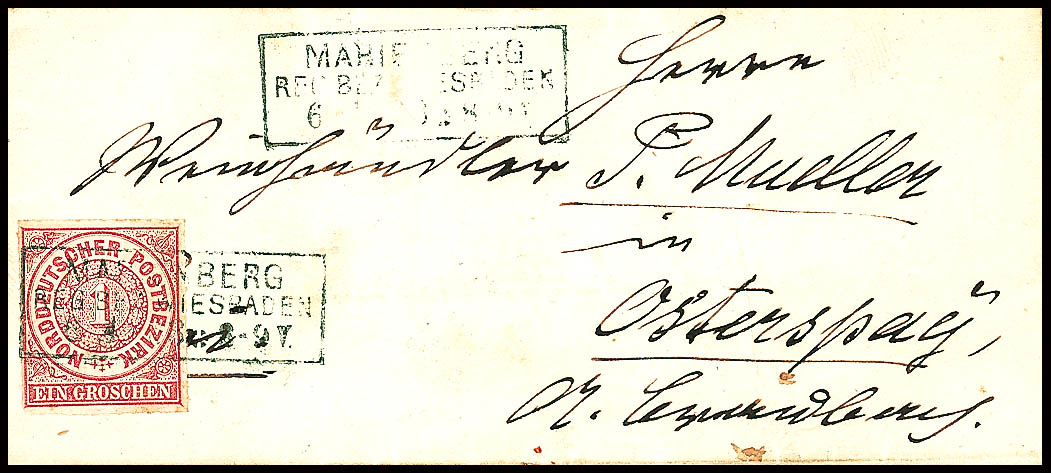 MARIE BERG
REG BEZ WIESBADEN
6
8-9V.
Herrn
Weinhändler P. Mueller
in
Osterspay,
NORDDEUTSCHER POSTBEZIRK
1
EIN GROSCHEN
BERG
WIESBADEN
8-9V.